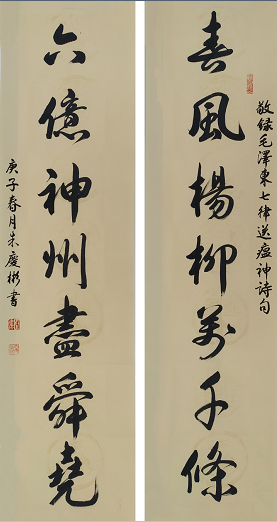 敬録毛澤東七律送瘟神詩句
春風楊柳萬千條
六億神州盡舜堯
庚子春月朱慶彬書